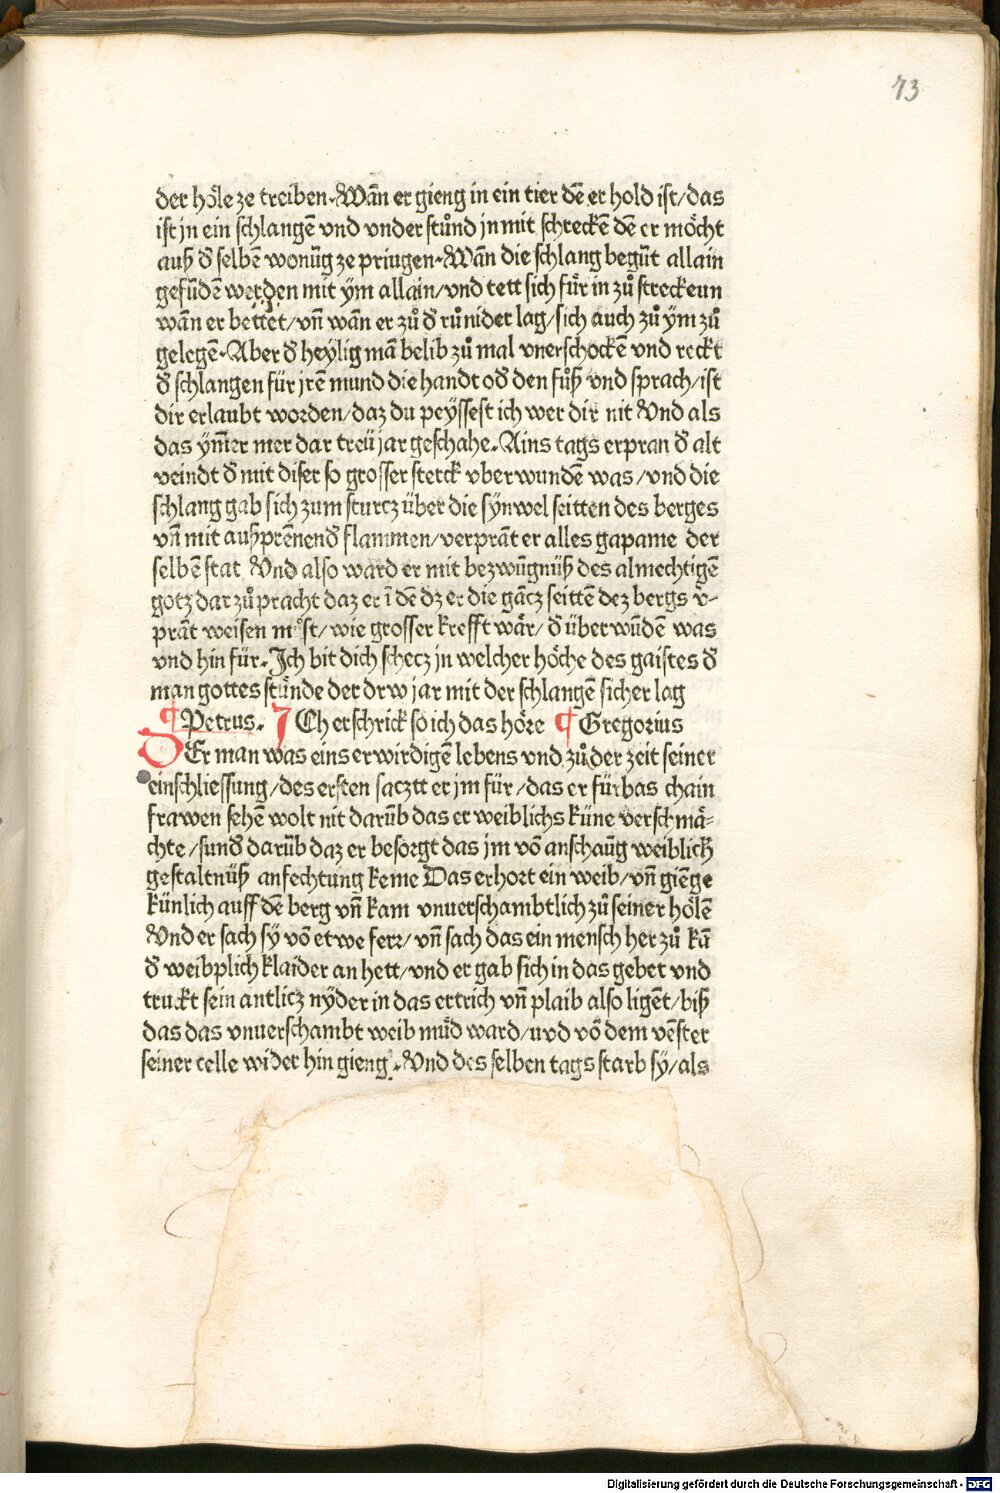 73
der höle ze treiben. Wañ er gieng in ein tier dē er hold ist/das
ist jn ein schlangē vnd vnder stůnd jn mit schreckē dē er möcht
auß d̕ selbē wonūg ze priugen. Wañ die schlang begūt allain
gefūdē werden mit ym allain/vnd tett sich für in zů streckeun
wañ er bettet/vñ wañ er zů d̕ rů nider lag/sich auch zů ÿm zů
gelegē. Aber d̕ heylig mā belib zů mal vnerschockē vnd reckt
d̕ schlangen für jrē mund die handt od̕ den fůß vnd sprach/ist
dir erlaubt worden/daz du peÿssest ich wer dir nit Vnd als
das ÿm̄er mer dar treü jar geschahe. Ains tags erpran d̕ alt
veindt d̕ mit diser so grosser sterck vberwundē was/vnd die
schlang gab sich zum sturcz über die sÿnwel seitten des berges
vñ mit außprēnend̕ flammen/verprāt er alles gapame der
selbē stat Vnd also ward er mit bezwūgnüß des almechtigē
gotz dar zů pracht daz er ī dē dz er die gācz seittē dez bergs v̄-
prāt weisen můst/wie grosser krefft wär/d̕ überwūdē was
vnd hin für. Ich bit dich schecz jn welcher höche des gaistes d̕
man gottes stünde der drw jar mit der schlangē sicher lag
¶ Petrus. ICh erschrick so ich das höre ¶ Gregorius
DEr man was eins erwirdigē lebens vnd zů der zeit seiner
einschliessung/des ersten sacztt er jm für/das er fürbas chain
frawen sehē wolt nit darūb das er weiblichs küne verschmä-
chte/sund̕ darūb daz er besorgt das jm vō anschaūg weiblich
gestaltnüß anfechtung keme Das erhort ein weib/vñ giēge
künlich auff dē berg vñ kam vnuerschambtlich zů seiner hölē
Vnd er sach sÿ vō etwe ferr/vñ sach das ein mensch her zů kā
d̕ weibplich klaider an hett/vnd er gab sich in das gebet vnd
truckt sein antlicz nÿder in das ertrich vñ plaib also ligēt/biß
das das vnuerschambt weib müd ward/uvd vō dem vēster
seiner celle wider hin gieng. Vnd des selben tags starb sÿ/als
Digitalisierung gefördert durch die Deutsche Forschungsgemeinschaft - DFG